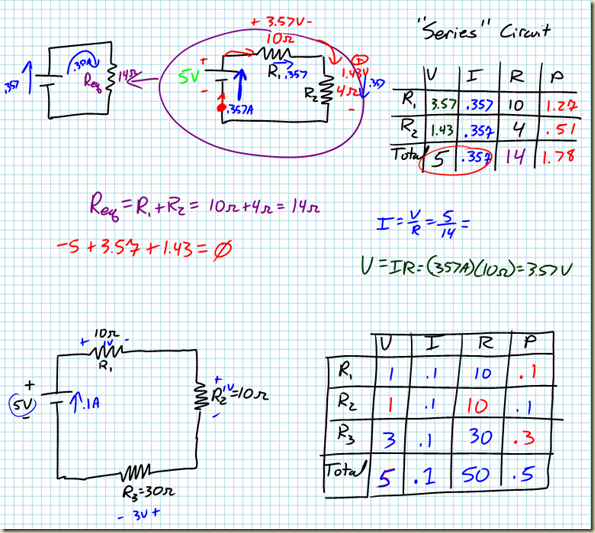 "Series" Circuit
+ 3.57V -
10Ω
R₁ .357
5V
+
-
.357A
R₂
4Ω
+
1.43V
-
.357
.357
Req
14Ω
V I R P
R₁ 3.57 .357 10 1.27
R₂ 1.43 .357 4 .51
Total 5 .357 14 1.78
Req = R₁ + R₂ = 10Ω + 4Ω = 14Ω
-5 + 3.57 + 1.43 = Ø
I = V/R = 5/14 =
V = IR = (.357A)(10Ω) = 3.57V
10Ω
+ 1V -
R₁
+
5V
-
.1A
+ 1V
R₂=10Ω
-
R₃=30Ω
- 3V +
V I R P
R₁ 1 .1 10 .1
R₂ 1 .1 10 .1
R₃ 3 .1 30 .3
Total 5 .1 50 .5